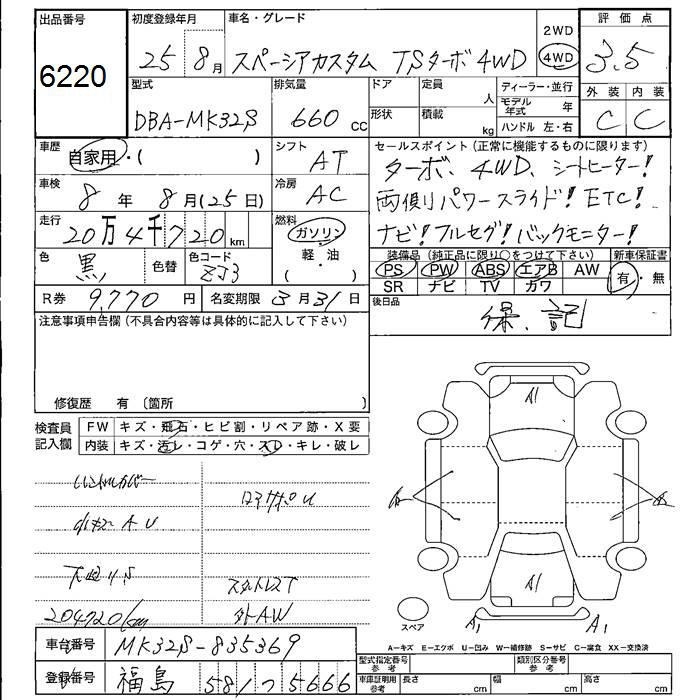 出品番号
6220
初度登録年月
25 8月
車名・グレード
スペーシアカスタム TSターボ 4WD
2WD
4WD
評価点
3.5
外装 内装
C C
型式
DBA-MK32S
排気量
660 cc
ドア
形状
定員
人
積載
kg
ディーラー・並行
モデル年式 年
ハンドル 左・右
車歴
自家用・( )
シフト
AT
車検
8年 8月(25日)
冷房
AC
走行
20万4千720km
燃料
ガソリン
軽・油
( )
色
黒
色替
色コード
ZJ3
R券 9,770円
名変期限 3月31日
セールスポイント(正常に機能するものに限ります)
ターボ、4WD、シートヒーター!
両側パワースライド! ETC!
ナビ!フルセグ!バックモニター!
装備品(純正品に限り○をつけて下さい)
PS PW ABS エアB AW
SR ナビ TV カワ
新車保証書
有・無
後日品
保、記
注意事項申告欄(不具合内容等は具体的に記入して下さい)
修復歴 有 〔箇所 〕
検査員記入欄
FW キズ・飛石・ヒビ割・リペア跡・X要
内装 キズ・汚レ・コゲ・穴・スレ・キレ・破レ
スタットレスT
外AW
204720km
A1
A1
A1
A1
スペア
A-キズ E-エクボ U-凹み W-補修跡 S-サビ C-腐食 XX-交換済
車台番号 MK32S-835369
登録番号 福島 581 つ 5666
型式指定番号 参考
類別区分番号 参考
車庫証明用 参考
長さ cm
幅 cm
高さ cm